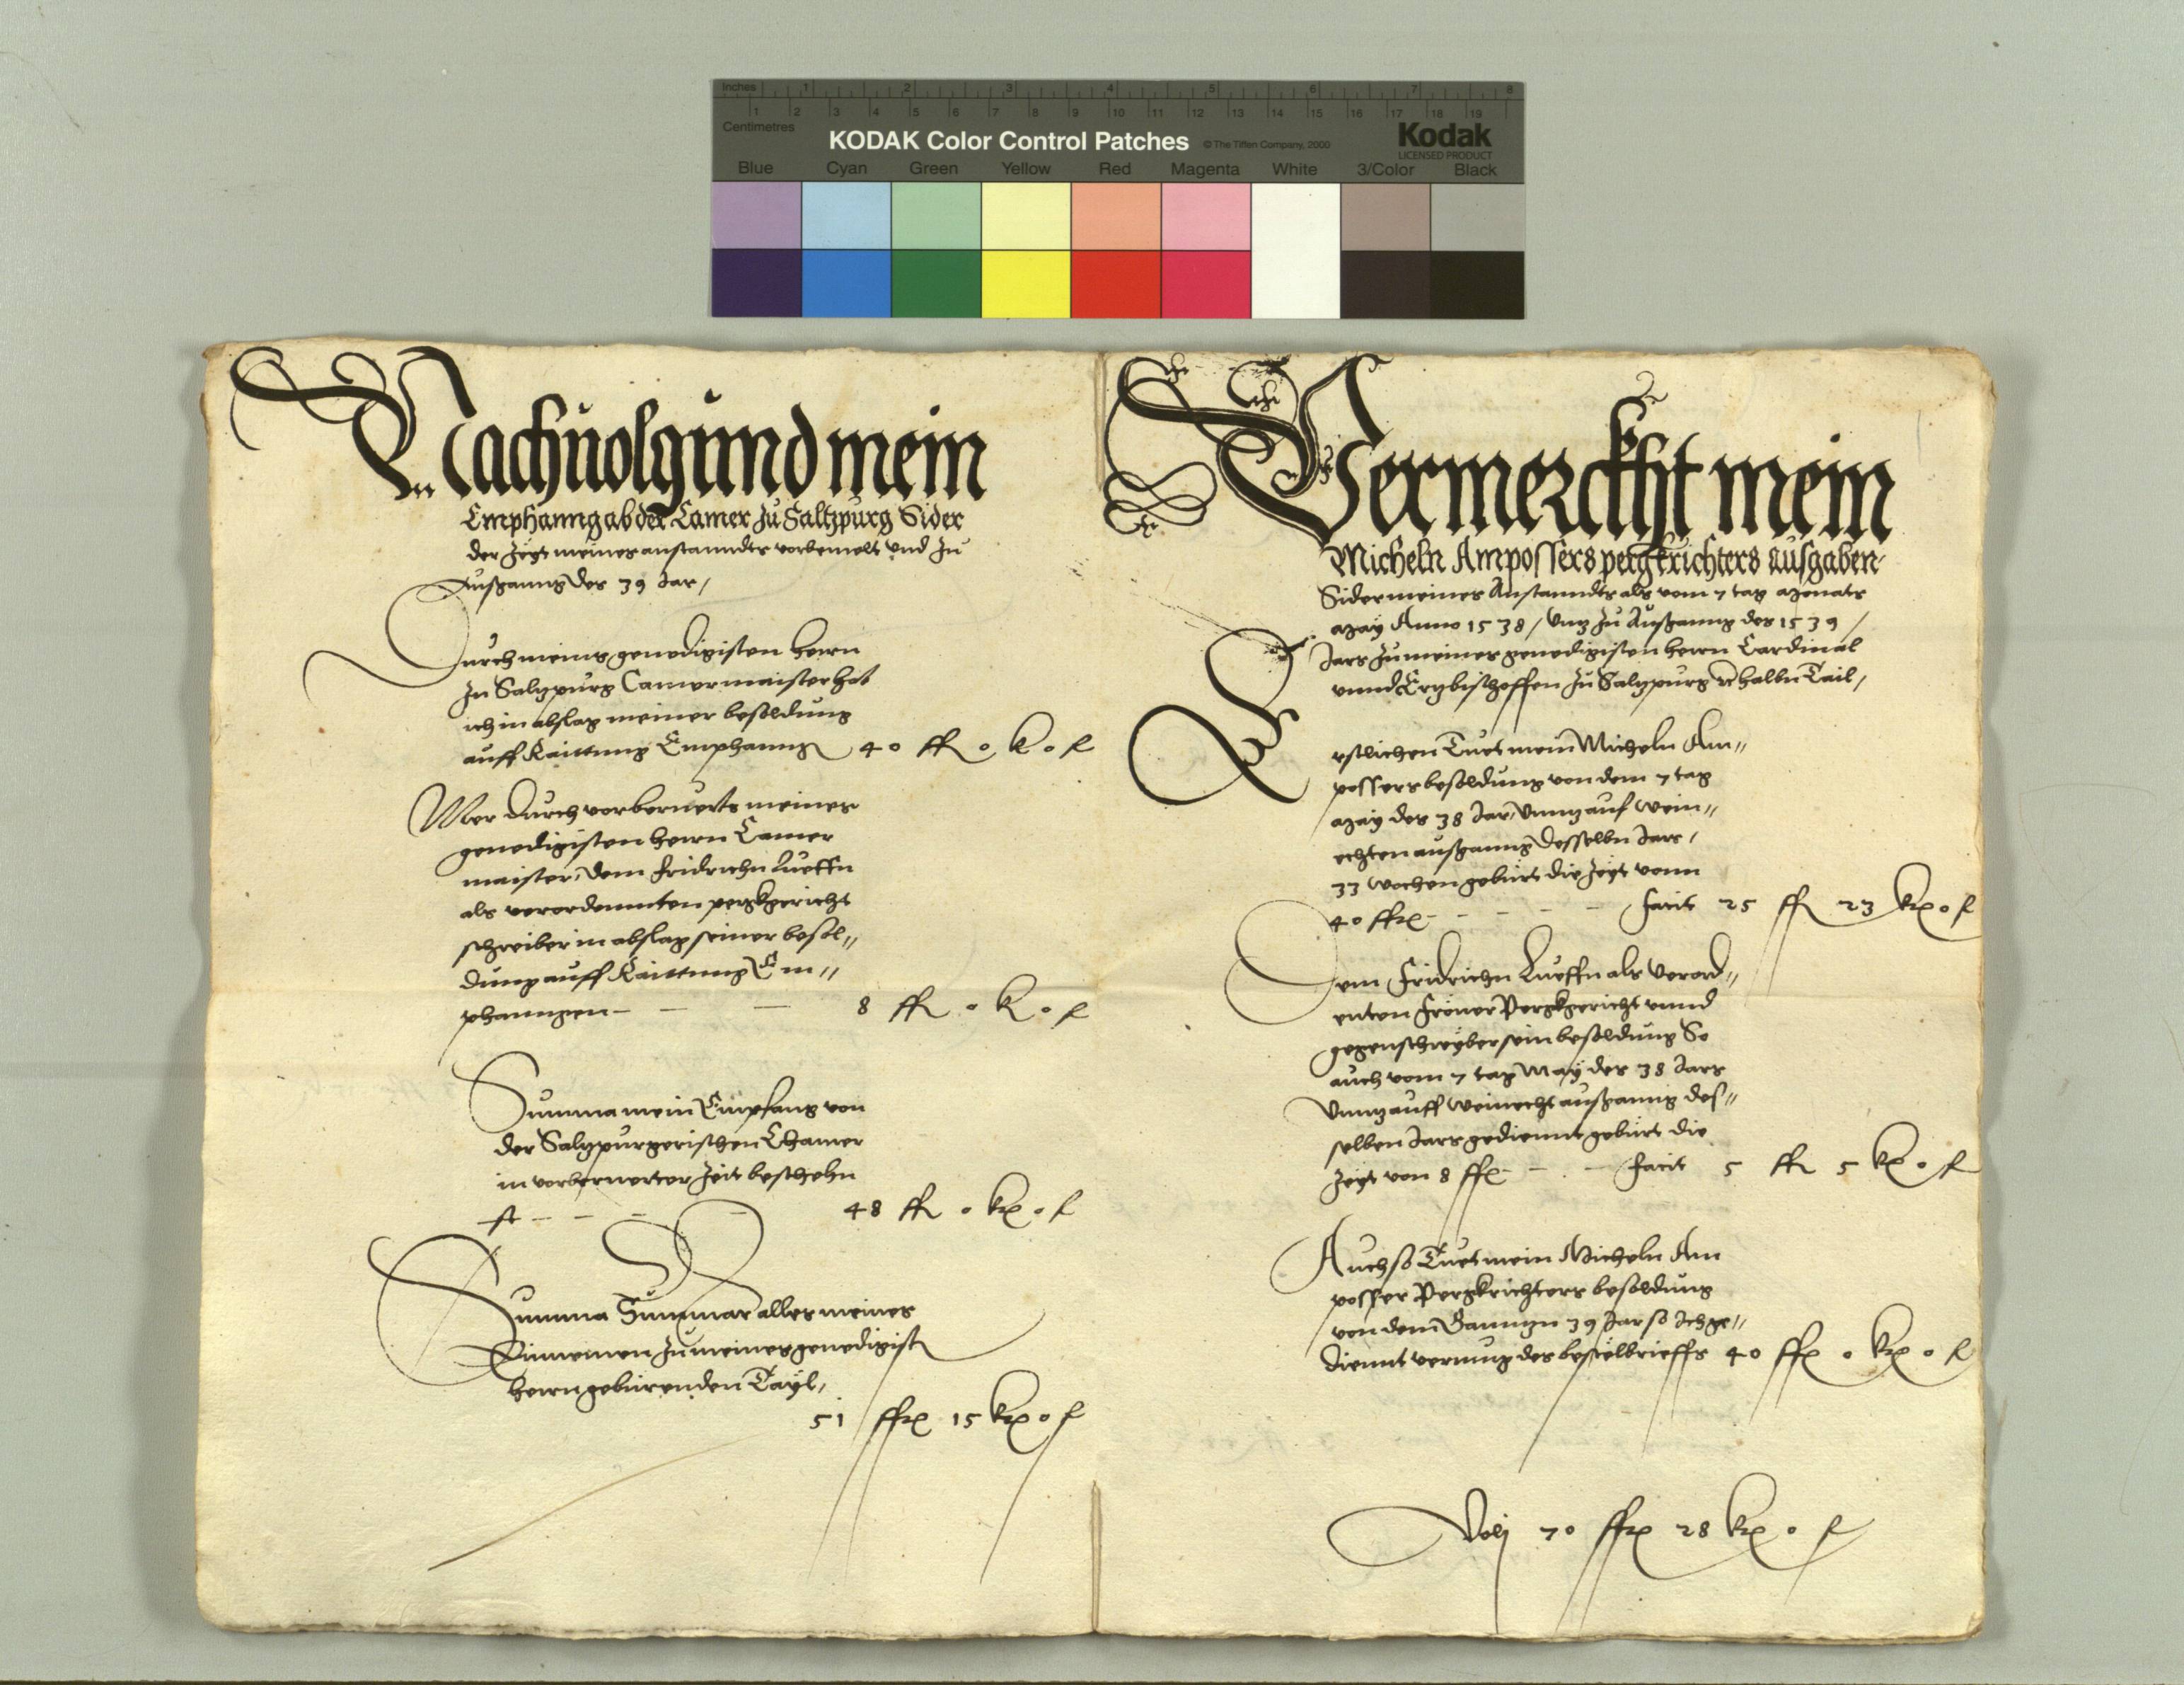 Inches 1 2 3 4 5 6 7 8
1 2 3 4 5 6 7 8 9 10 11 12 13 14 15 16 17 18 19
Centimetres
KODAK Color Control Patches © The Tiffen Company, 2000
Kodak
LICENSED PRODUCT
Blue Cyan Green Yellow Red Magenta White 3/Color Black
Nachuolgund mein
Emphanng ab der Camer zu Saltzpurg Sider
der Zeyt meines anstanndts vorbemelt vnd zu
Außganng des 39 Jar,
Durch meins genedigisten herrn
zu Saltzpurg Camermaister hat
ich in abslag meiner besoldung
auff Raittung Emphanng 40 fl 0 k 0 f
Mer durch vorberuerts meines
genedigisten herrn Camer
maister, dem Fridrichn Lueffn
als verordennten pergkgericht
schreiber in abslag seiner besol〃
dung auff Raittung Em〃
phanngen - - - 8 fl 0 k 0 f
Summa mein Empfang von
der Saltzpurgerischen Chamer
in vorberuerter Zeit beschehn
ist - - - - 48 fl 0 kr 0 f
Summa Summar alles meines
Einnemen zu meines genedigist
herrn gebürenden Tayl,
51 fl 15 kr 0 f
Vermerckht mein
Micheln Ampossers pergkrichters ausgaben
Sider meines Anstanndts als vom 7 tag monats
may Anno 1538 / vntz zu Außganng des 1539 /
Jars zu meines genedigisten herrn Cardinal
vnnd Ertzbischoffen zu Saltzpurg rc halbn Tail,
Erstlichen Tuet mein Micheln Am〃
possers besoldung von dem 7 tag
may des 38 Jar vnntz auf wein〃
echten außganng desselbn Jars,
33 wochen gebürt die Zeyt vonn
40 fl - - - - facit 25 fl 23 kr 0 f
Dem Fridrichn Lueffn als verord〃
enten Froner Pergkgericht vnnd
gegenschreyber sein besoldung So
auch vom 7 tag May des 38 Jars
vnntz auff weinecht außganng des〃
selben Jars gediennt gebürt die
Zeyt von 8 fl - - - facit 5 fl 5 kr 0 f
Auch so Tuet mein Micheln Am
posser Pergkrichters besoldung
von dem Ganntzn 39 Jar so Ich ge〃
diennt vermug des bestelbrieffs 40 fl 0 kr 0 f
70 fl 28 kr 0 f